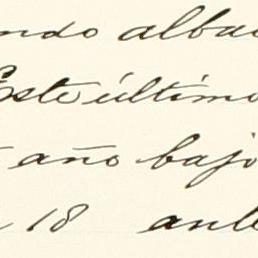 ndo alba
Este último
año bajo
18 ante